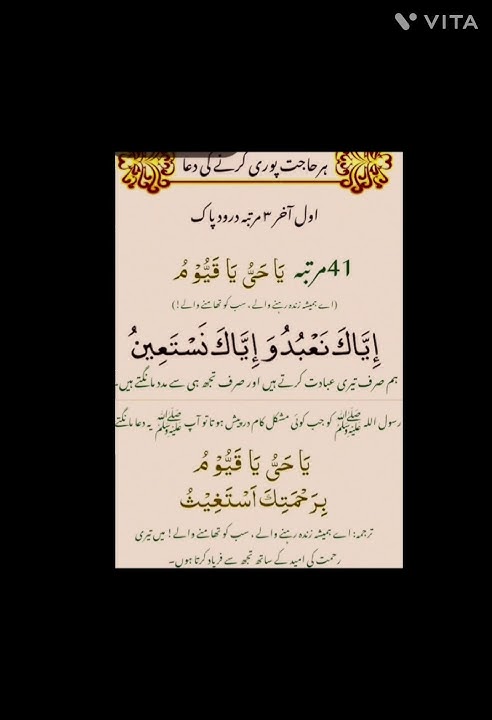 VITA
ہر حاجت پوری کرنے کی دعا
اول آخر ۳ مرتبہ درود پاک
41 مرتبہ يَا حَىُّ يَا قَيُّوْمُ
(اے ہمیشہ زندہ رہنے والے، سب کو تھامنے والے!)
إِيَّاكَ نَعْبُدُ وَ إِيَّاكَ نَسْتَعِينُ
ہم صرف تیری عبادت کرتے ہیں اور صرف تجھ ہی سے مدد مانگتے ہیں۔
رسول اللہ ﷺ کو جب کوئی مشکل کام درپیش ہوتا تو آپ ﷺ یہ دعا مانگتے
يَا حَىُّ يَا قَيُّوْمُ
بِرَحْمَتِكَ اَسْتَغِيْثُ
ترجمہ: اے ہمیشہ زندہ رہنے والے، سب کو تھامنے والے! میں تیری
رحمت کی امید کے ساتھ تجھ سے فریاد کرتا ہوں۔